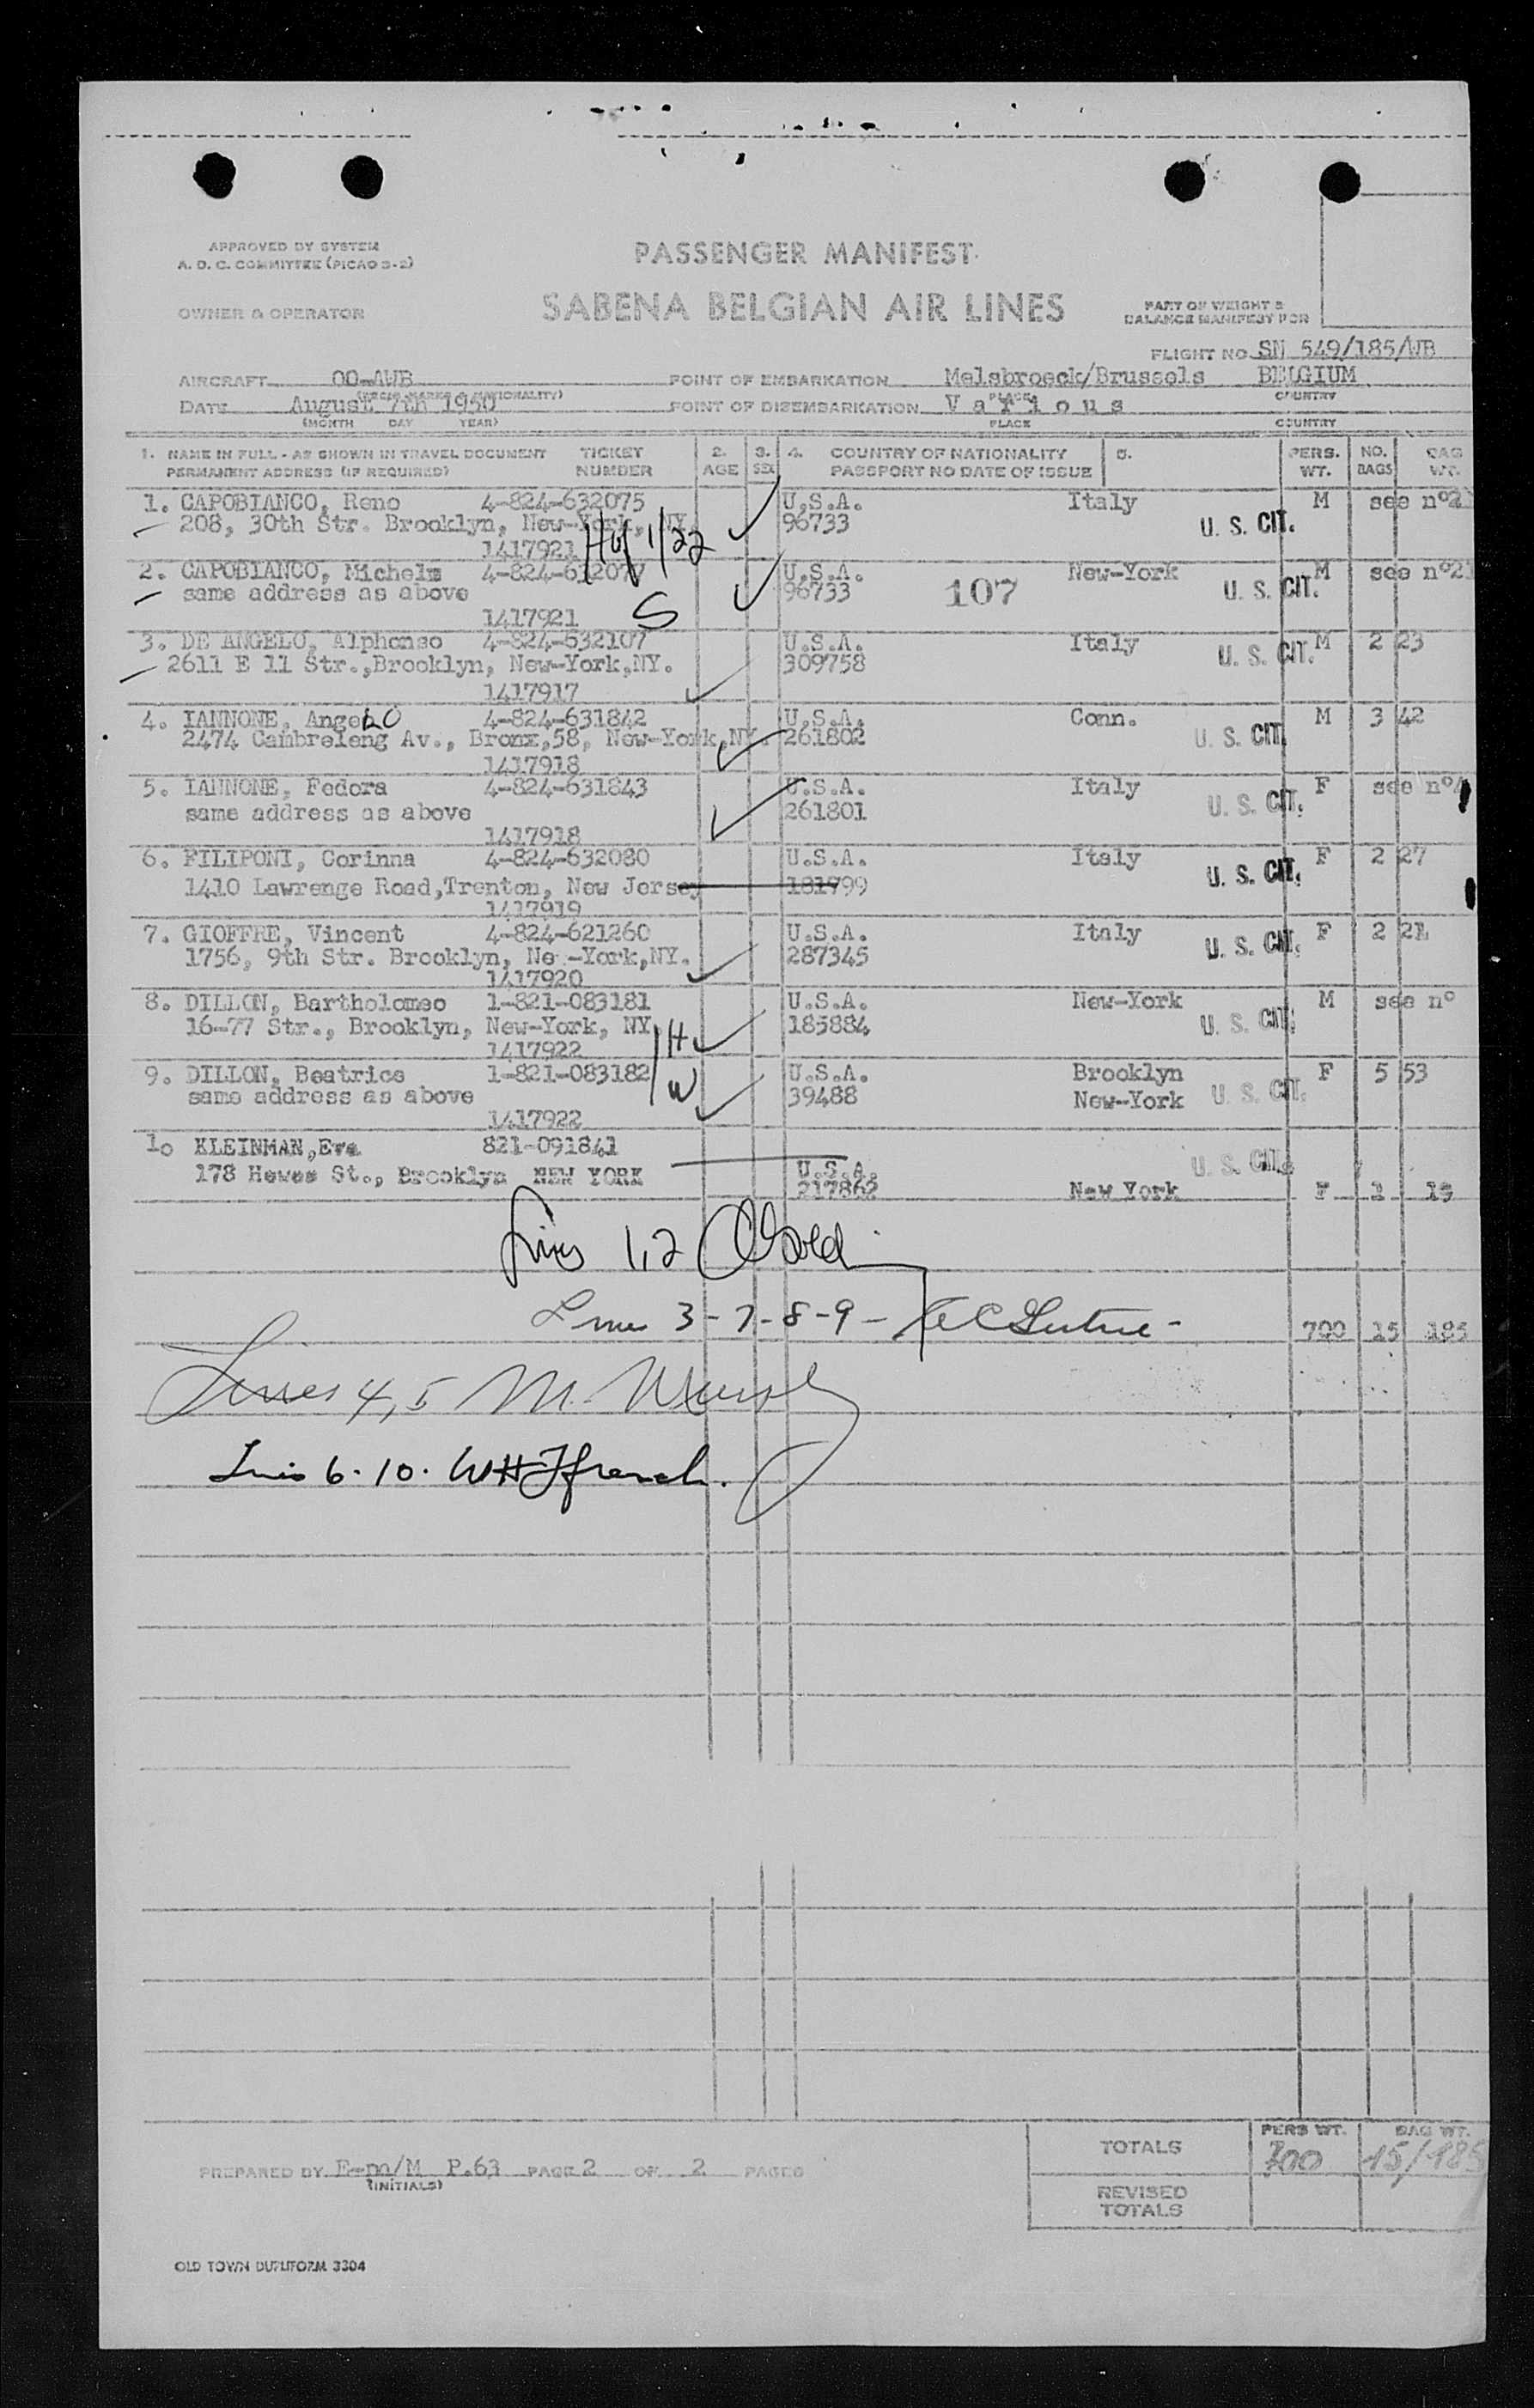 APPROVED BY SYSTEM
A. D. C. COMMITTEE (PICAO S-2)
PASSENGER MANIFEST
OWNER & OPERATOR
SABENA BELGIAN AIR LINES
PART OF WEIGHT &
BALANCE MANIFEST FOR
FLIGHT NO SN 549/185/WB
AIRCRAFT OO-AWB POINT OF EMBARKATION Melsbroeck/Brussels BELGIUM
PLACE COUNTRY
DATE August 7th 1950 POINT OF DISEMBARKATION V a r i o u s
(MONTH DAY YEAR) PLACE COUNTRY
1. NAME IN FULL - AS SHOWN IN TRAVEL DOCUMENT TICKET 2. 3. 4. COUNTRY OF NATIONALITY 5. PERS. NO. BAG
PERMANENT ADDRESS (IF REQUIRED) NUMBER AGE SEX PASSPORT NO DATE OF ISSUE WT. BAGS WT.
1. CAPOBIANCO, Reno 4-824-632075 U.S.A. Italy M see nº2
208, 30th Str. Brooklyn, New-York, NY. 96733 U. S. CIT.
1417921
2. CAPOBIANCO, Michele 4-824-632077 U.S.A. New-York M see nº2
same address as above 96733 107 U. S. CIT.
1417921 S
3. DE ANGELO, Alphonso 4-824-632107 U.S.A. Italy M 2 23
2611 E 11 Str.,Brooklyn, New-York,NY. 309758 U. S. CIT.
1417917
4. IANNONE, AngeLO 4-824-631842 U.S.A. Conn. M 3 42
2474 Cambreleng Av., Bronx,58, New-York,NY. 261802 U. S. CIT.
1417918
5. IANNONE, Fedora 4-824-631843 U.S.A. Italy F see nº4
same address as above 261801 U. S. CIT.
1417918
6. FILIPONI, Corinna 4-824-632080 U.S.A. Italy F 2 27
1410 Lawrenge Road,Trenton, New Jersey 181799 U. S. CIT.
1417919
7. GIOFFRE, Vincent 4-824-621260 U.S.A. Italy F 2 21
1756, 9th Str. Brooklyn, Ne -York,NY. 287345 U. S. CIT.
1417920
8. DILLON, Bartholomeo 1-821-083181 U.S.A. New-York M see nº
16-77 Str., Brooklyn, New-York, NY. 185884 U. S. CIT.
1417922 H
9. DILLON, Beatrice 1-821-083182 U.S.A. Brooklyn F 5 53
same address as above W 39488 New-York U. S. CIT.
1417922
10 KLEINMAN,Eva 821-091841
178 Hewes St., Brooklyn NEW YORK U.S.A. U. S. CIT.
217862 New York F 1 19
Lines 1,2
Lines 3-7-8-9-
700 15 185
Lines 4,5 M.
Lines 6.10.
TOTALS PERS WT. BAG WT.
700 15/185
PREPARED BY E-m/M P.63 PAGE 2 OF 2 PAGES
(INITIALS)
REVISED
TOTALS
OLD TOWN DUPLIFORM 3304